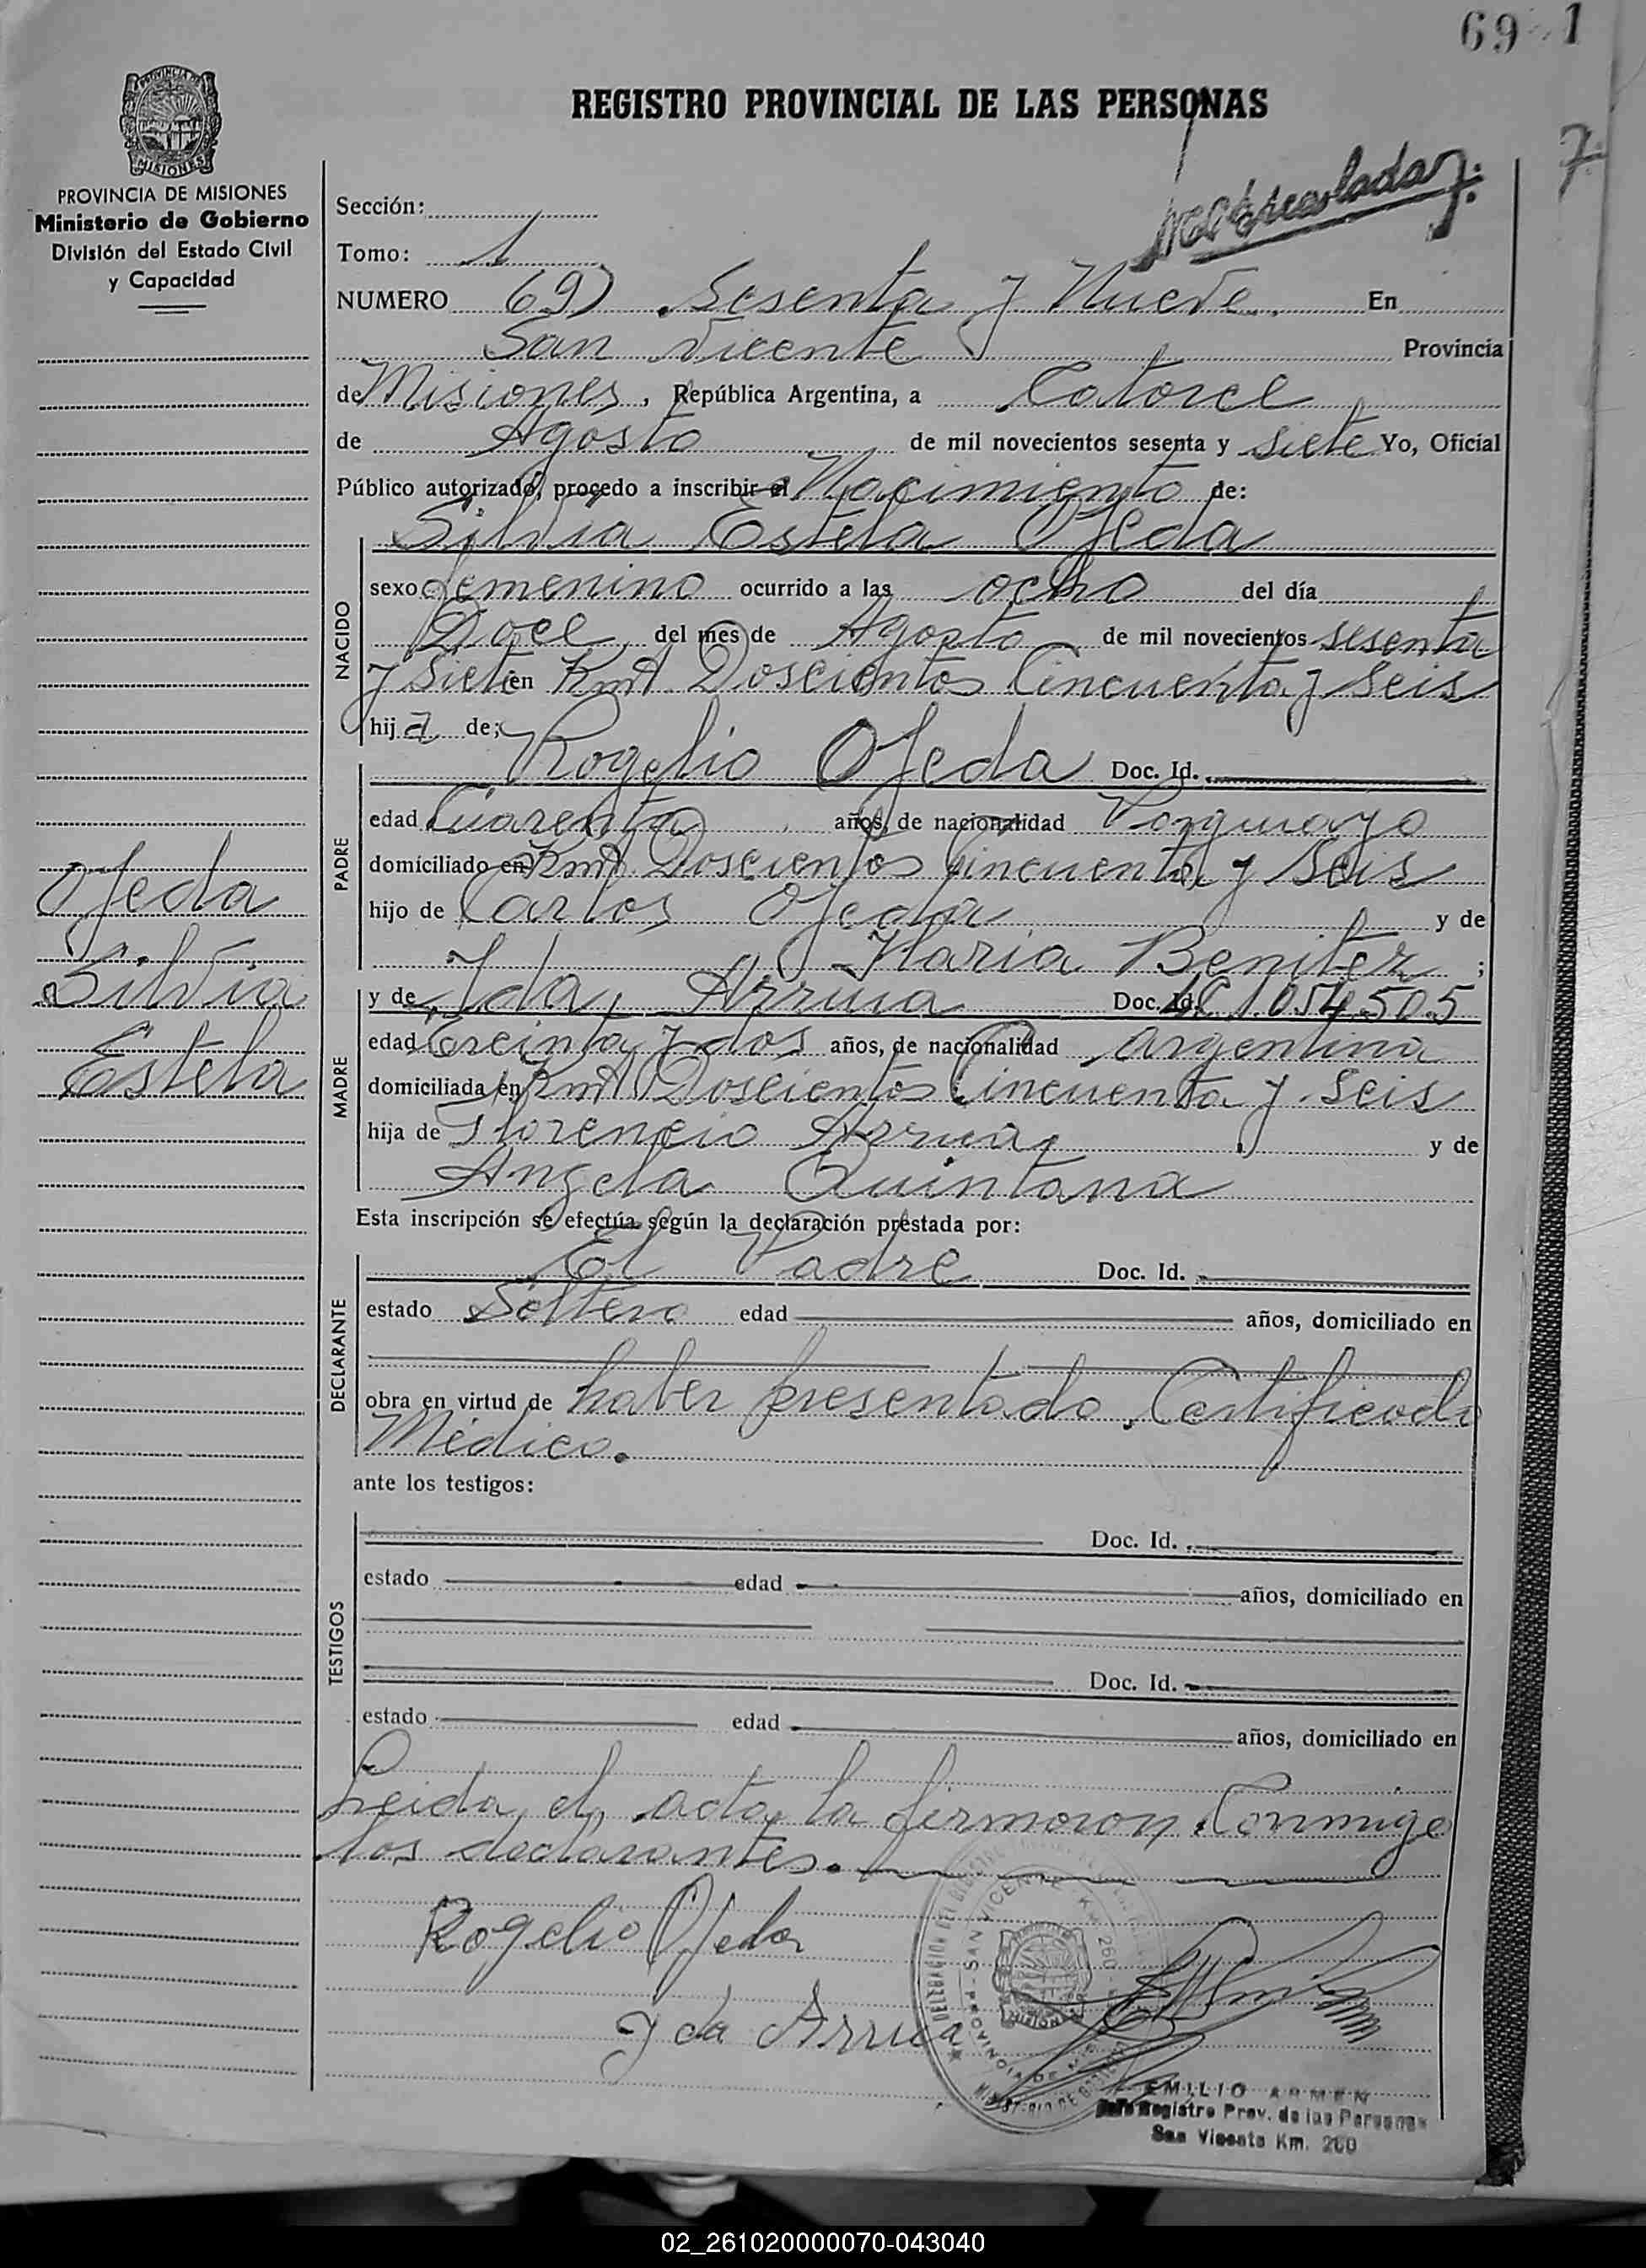 69 1
7.
PROVINCIA DE MISIONES
Ministerio de Gobierno
División del Estado Civil
y Capacidad
REGISTRO PROVINCIAL DE LAS PERSONAS
Sección:
Tomo: 1
NUMERO 69) Sesenta y Nueve. En
San Vicente Provincia
de Misiones, República Argentina, a Catorce
de Agosto de mil novecientos sesenta y siete Yo, Oficial
Público autorizado, procedo a inscribir el Nacimiento de:
Silvia Estela Ojeda
NACIDO
sexo femenino ocurrido a las ocho del día
Doce del mes de Agosto de mil novecientos sesenta
y Siete en Km. Doscientos Cincuenta y Seis
hija de;
PADRE
Rogelio Ojeda Doc. Id.
edad Cuarenta años, de nacionalidad Paraguayo
domiciliado en Km. Doscientos Cincuenta y Seis
hijo de Carlos Ojeda y de
Maria Benitez ;
MADRE
y de Ida Arrua Doc. Id. LC 1.054.505
edad Treinta y dos años, de nacionalidad Argentina
domiciliada en Km. Doscientos Cincuenta y Seis
hija de Florencio Arrua, y de
Angela Quintana
Esta inscripción se efectúa según la declaración prestada por:
DECLARANTE
El Padre Doc. Id.
estado Soltero edad años, domiciliado en
obra en virtud de haber presentado Certificado
Médico.
ante los testigos:
TESTIGOS
Doc. Id.
estado edad años, domiciliado en
Doc. Id.
estado edad años, domiciliado en
Leida el acta la firmaron Conmigo
los declarantes.
Rogelio Ojeda
Yda Arrua
Ojeda
Silvia
Estela
SAN VICENTE KM 260
EMILIO ARMEN
Registro Prov. de las Personas
San Vicente Km. 260
02_261020000070-043040